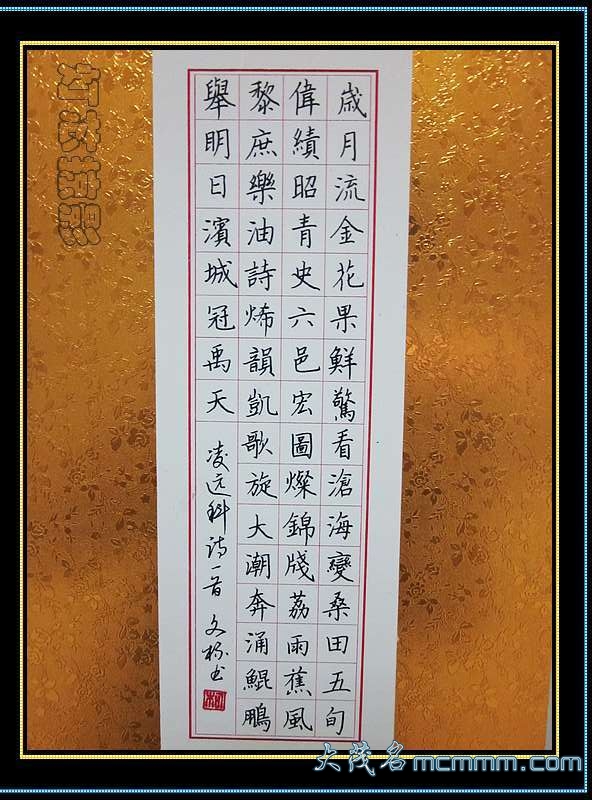 歲月流金花果鮮驚看滄海變桑田五旬
偉績昭青史六邑宏圖燦錦牋荔雨蕉風
黎庶樂油詩烯韻凱歌旋大潮奔涌鯤鵬
舉明日濱城冠禹天
凌远科诗一首 文栋书
大茂名mcmmm.com